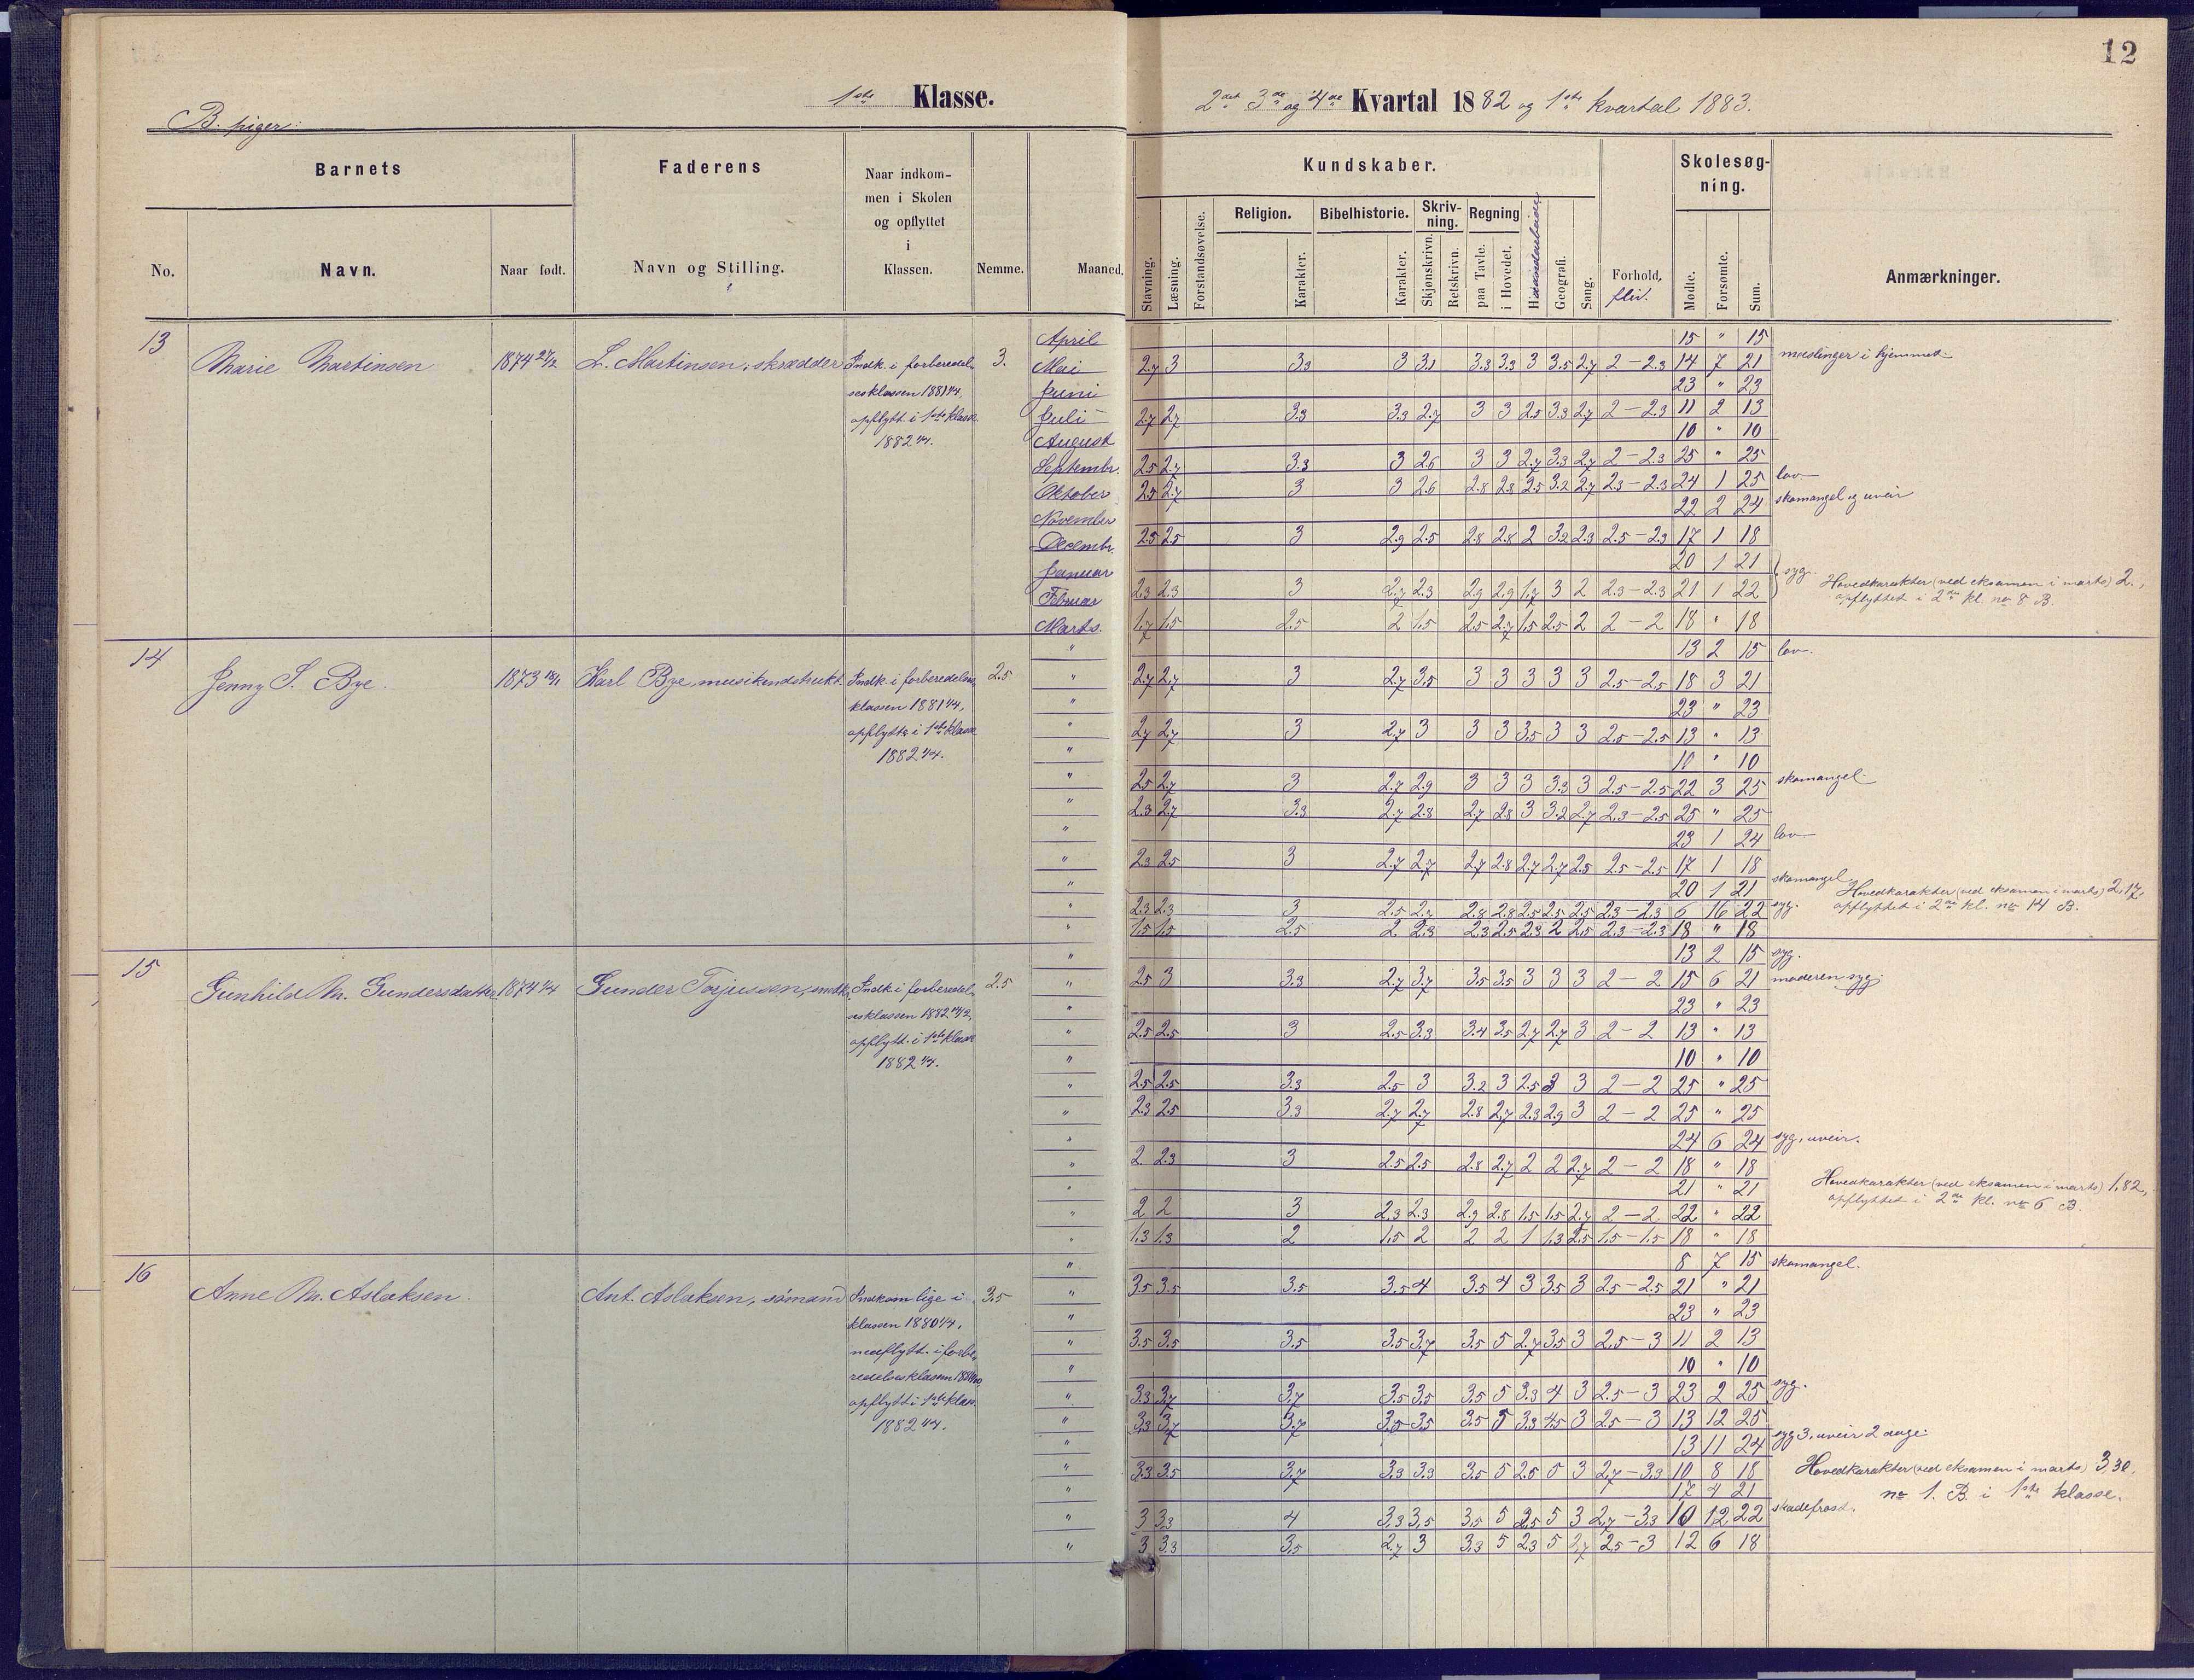 12
1ste Klasse.
2det 3de og 4de Kvartal 1882 og 1ste kvartal 1883.
B. piger:
Barnets
Faderens
Naar indkommen i Skolen og opflyttet i Klassen.
Nemme.
Maaned.
Kundskaber.
Skolesøgning.
No.
Navn.
Naar født.
Navn og Stilling.
Stavning.
Læsning.
Forstandsøvelse.
Religion.
Karakter.
Bibelhistorie.
Karakter.
Skrivning.
Skjønskrivn.
Retskrivn.
Regning
paa Tavle.
i Hovedet.
Haandarbeide
Geografi.
Sang.
Forhold,
flid.
Mødte.
Forsømte.
Sum.
Anmærkninger.
13
Marie Martinsen
1874 27/2
L. Martinsen, skrædder
Indk. i forberedel-
sesklassen 1881 1/4,
opflytt. i 1ste klasse
1882 1/4.
3.
April 15 " 15
Mai 2.7 3 3.3 3 3.1 3.3 3.3 3 3.5 2.7 2–2.3 14 7 21 mæslinger i hjemmet
Juni 23 " 23
Juli 2.7 2.7 3.3 3.3 2.7 3 3 2.5 3.3 2.7 2–2.3 11 2 13
August 10 " 10
Septembr. 2.5 2.7 3.3 3 2.6 3 3 2.7 3.3 2.7 2–2.3 25 " 25
Oktober 2.5 2.7 3 3 2.6 2.8 2.8 2.5 3.2 2.7 2.3–2.3 24 1 25 lov
November 22 2 24 skomangel og uveir
Decembr. 2.5 2.5 3 2.9 2.5 2.8 2.8 2 3.2 2.3 2.5–2.3 17 1 18
Januar 20 1 21 syg.
Februar 2.3 2.3 3 2.7 2.3 2.9 2.9 1.7 3 2 2.3–2.3 21 1 22
Marts. 1.7 1.5 2.5 2 1.5 2.5 2.7 1.5 2.5 2 2–2 18 " 18
Hovedkarakter (ved eksamen i marts) 2.,
opflyttet i 2den kl. no 8 B.
14
Jenny S. Bye.
1873 18/1
Karl Bye, musikendstrukt.
Indk. i forberedelses
klassen 1881 1/4,
opflytt. i 1ste klasse
1882 1/4.
2.5
" 13 2 15 lov.
" 2.7 2.7 3 2.7 3.5 3 3 3 3 3 2.5–2.5 18 3 21
" 23 " 23
" 2.7 2.7 3 2.7 3 3 3 3.5 3 3 2.5–2.5 13 " 13
" 10 " 10
" 2.5 2.7 3 2.7 2.9 3 3 3 3.3 3 2.5–2.5 22 3 25 skomangel
" 2.3 2.7 3.3 2.7 2.8 2.7 2.8 3 3.2 2.7 2.3–2.5 25 " 25
" 23 1 24 lov
" 2.3 2.5 3 2.7 2.7 2.7 2.8 2.7 2.7 2.5 2.5–2.5 17 1 18
" 20 1 21 skomangel
" 2.3 2.3 3 2.5 2.7 2.8 2.8 2.5 2.5 2.5 2.3–2.3 6 16 22 syg.
" 1.5 1.5 2.5 2 2.3 2.3 2.5 2.3 2 2.5 2.3–2.3 18 " 18
Hovedkarakter (ved eksamen i marts) 2,17,
opflyttet i 2den kl. no 14 B.
15
Gunhild M. Gundersdatter
1874 1/4
Gunder Torjussen, smed
Indk. i forberedel-
sesklassen 1882
opflytt. i 1ste klasse
1882 1/4.
2.5
" 13 2 15 syg.
" 2.5 3 3.3 2.7 3.7 3.5 3.5 3 3 3 2–2 15 6 21 moderen syg.
" 23 " 23
" 2.5 2.5 3 2.5 3.3 3.4 3.5 2.7 2.7 3 2–2 13 " 13
" 10 " 10
" 2.5 2.5 3.3 2.5 3 3.2 3 2.5 3 3 2–2 25 " 25
" 2.3 2.5 3.3 2.7 2.7 2.8 2.7 2.3 2.9 3 2–2 25 " 25
" 24 6 24 syg, uveir.
" 2 2.3 3 2.5 2.5 2.8 2.7 2 2 2.7 2–2 18 " 18
" 21 " 21
" 2 2 3 2.3 2.3 2.9 2.8 1.5 1.5 2.7 2–2 22 " 22
" 1.3 1.3 2 1.5 2 2 2 1 1.3 2.5 1.5–1.5 18 " 18
Hovedkarakter (ved eksamen i marts) 1,82,
opflyttet i 2den kl. no 6 B.
16
Anne M. Aslaksen.
Ant. Aslaksen, sømand
Indkom lige i
klassen 1880 1/4,
nedflytt. i forbe-
redelsesklassen
opflytt i 1ste klasse
1882 1/4.
3.5
" 8 7 15 skomangel.
" 3.5 3.5 3.5 3.5 4 3.5 4 3 3.5 3 2.5–2.5 21 " 21
" 23 " 23
" 3.5 3.5 3.5 3.5 3.7 3.5 5 2.7 3.5 3 2.5–3 11 2 13
" 10 " 10
" 3.3 3.7 3.7 3.5 3.5 3.5 5 3.3 4 3 2.5–3 23 2 25 syg.
" 3.3 3.7 3.7 3.5 3.5 3.5 5 3.3 4.5 3 2.5–3 13 12 25
" 13 11 24 syg 3, uveir 2 dage
" 3.3 3.5 3.7 3.3 3.3 3.5 5 2.5 5 3 2.7–3.3 10 8 18
" 17 4 21
" 3 3.3 4 3.3 3.5 3.5 5 2.5 5 3 2.7–3.3 10 12 22 skadefrost.
" 3 3.3 3.5 2.7 3 3.3 5 2.3 5 2.7 2.5–3 12 6 18
Hovedkarakter (ved eksamen i marts) 3,30,
no 1. B. i 1ste klasse.